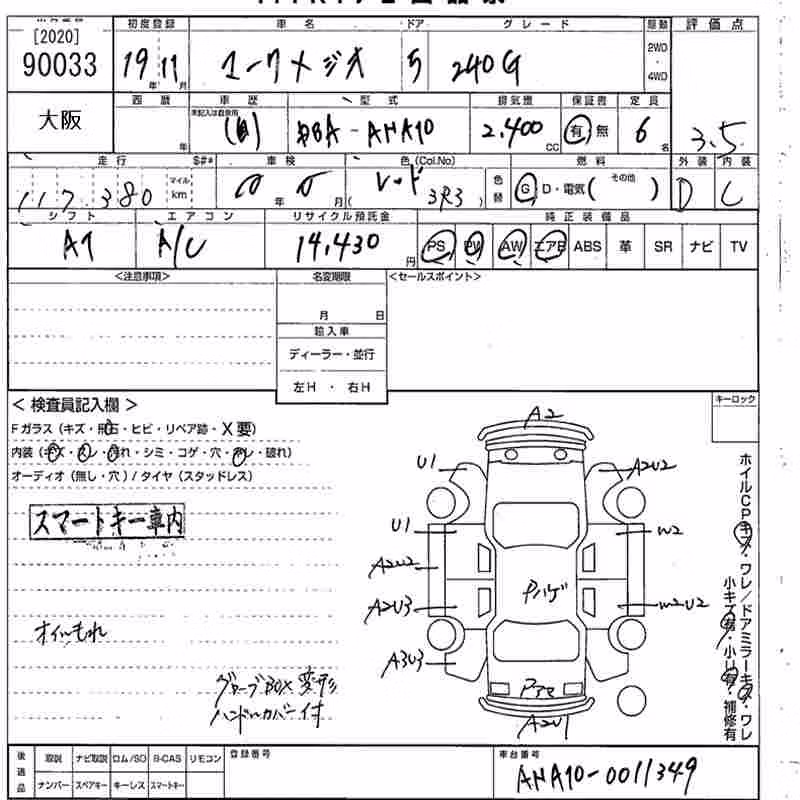 [2020]
90033
初度登録 車名 ドア グレード 駆動 評価点
19年 11月 マークXジオ 5 240G 2WD・4WD 3.5
大阪
西暦 車歴 型式 排気量 保証書 定員
年 未記入は自家用 (自) DBA-ANA10 2,400CC 有 無 6名
走行 S#* 車検 色(Col.No) 燃料 外装 内装
117,380 マイル km 0年 0月 レッド (3R3) 色替 G・D・電気( その他 ) D C
シフト エアコン リサイクル預託金 純正装備品
AT A/C 14,430円 PS PW AW エアB ABS 革 SR ナビ TV
<注意事項> 名変期限 <セールスポイント>
月 日
輸入車
ディーラー・並行
左H・右H
キーロック
<検査員記入欄>
Fガラス(キズ・飛石・ヒビ・リペア跡・X要)
内装(キズ・スレ・汚れ・シミ・コゲ・穴・破れ)
オーディオ(無し・穴)/タイヤ(スタッドレス)
スマートキー車内
オイルもれ
グローブBOX変形
ハンドルカバー付
A2
U1 A2U2
U1 W2
A2U2
Pハゲ
A2U3 W2U2
A3U3
Pアセ
A2U1
ホイルCPキズ・ワレ/ドアミラーキズ・ワレ
小キズ有・小U有・補修有
後送品 取説 ナビ取説 ロム/SD B-CAS リモコン 登録番号 車台番号
ナンバー スペアキー キーレス スマートキー ANA10-0011349